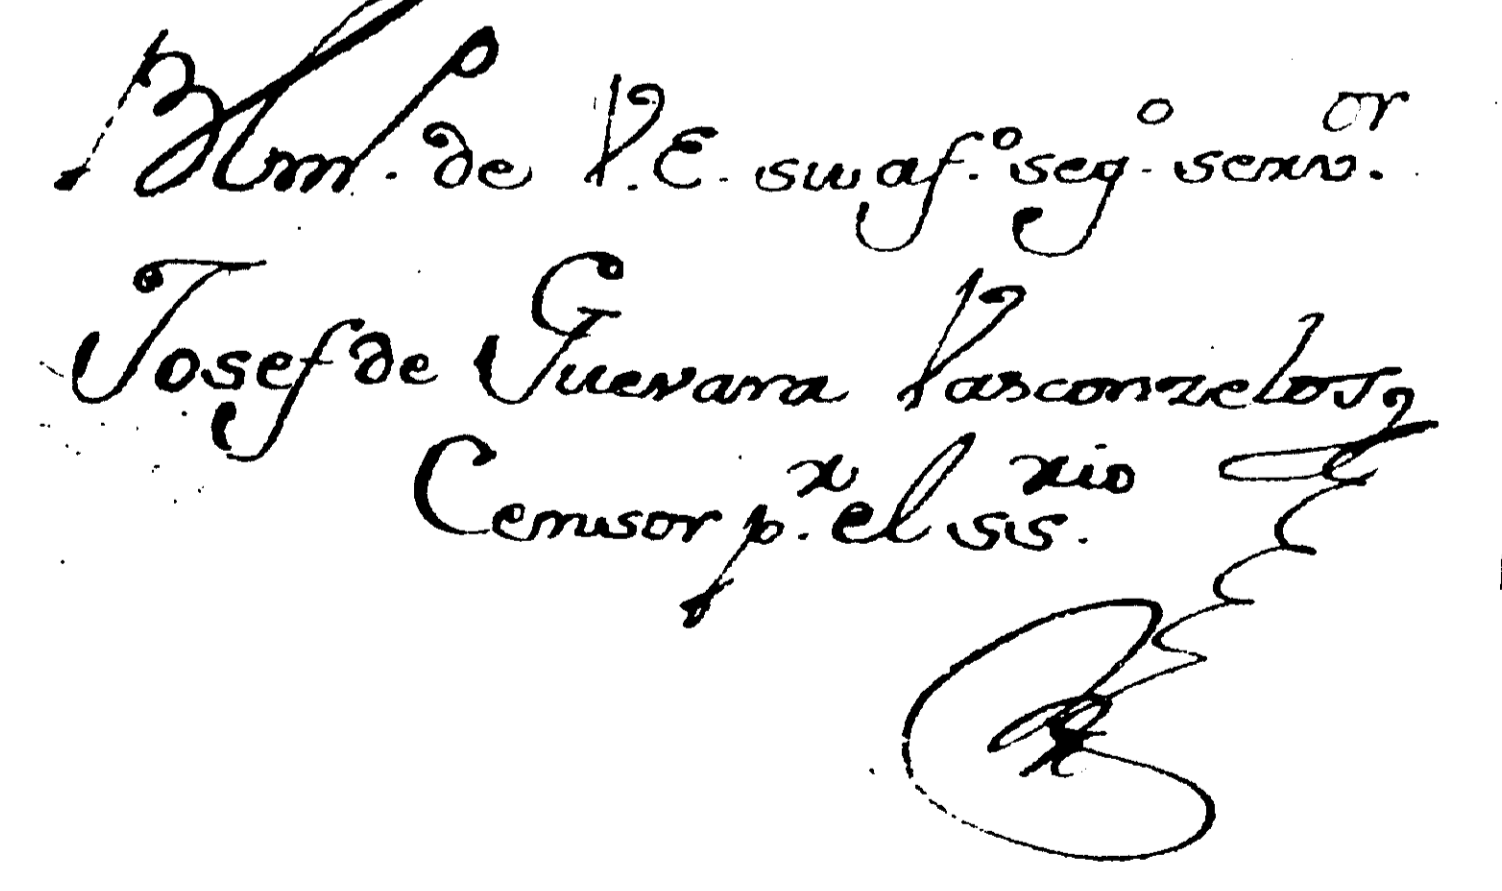 Blm. de V.E. su af.º seg.º serv.or
Josef de Guevara Vasconzelos,
Censor p.r el ss.rio